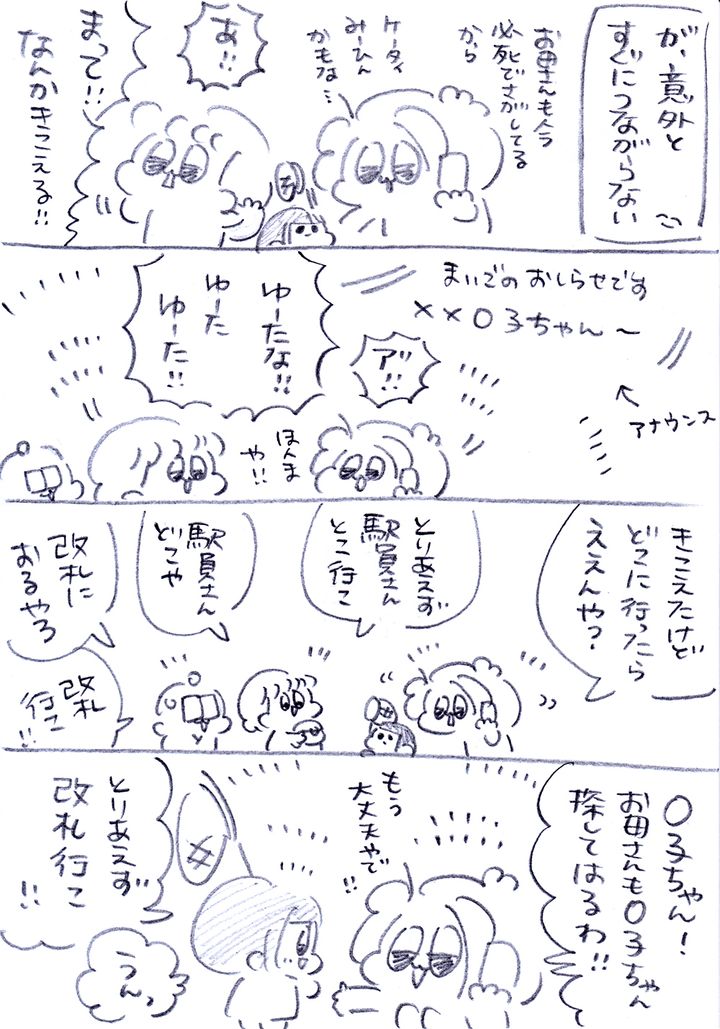 が、意外と
すぐにつながらない
お母さんも今
必死でさがしてる
から
ケータイ
みーひん
かもな…
あ!!
まって!!
なんかきこえる!!
まいごのおしらせです
××〇子ちゃん〜
アナウンス
ア"!!
ゆーたな!!
ゆーた
ゆーた!!
ほんま
や!!
きこえたけど
どこに行ったら
ええんや?
とりあえず
駅員さん
とこ行こ
駅員さん
どこや
改札に
おるやろ
改札
行こ
!!
〇子ちゃん!
お母さんも〇子ちゃん
探してはるわ!!
もう
大丈夫やで
!!
とりあえず
改札行こ
!!
うんっ